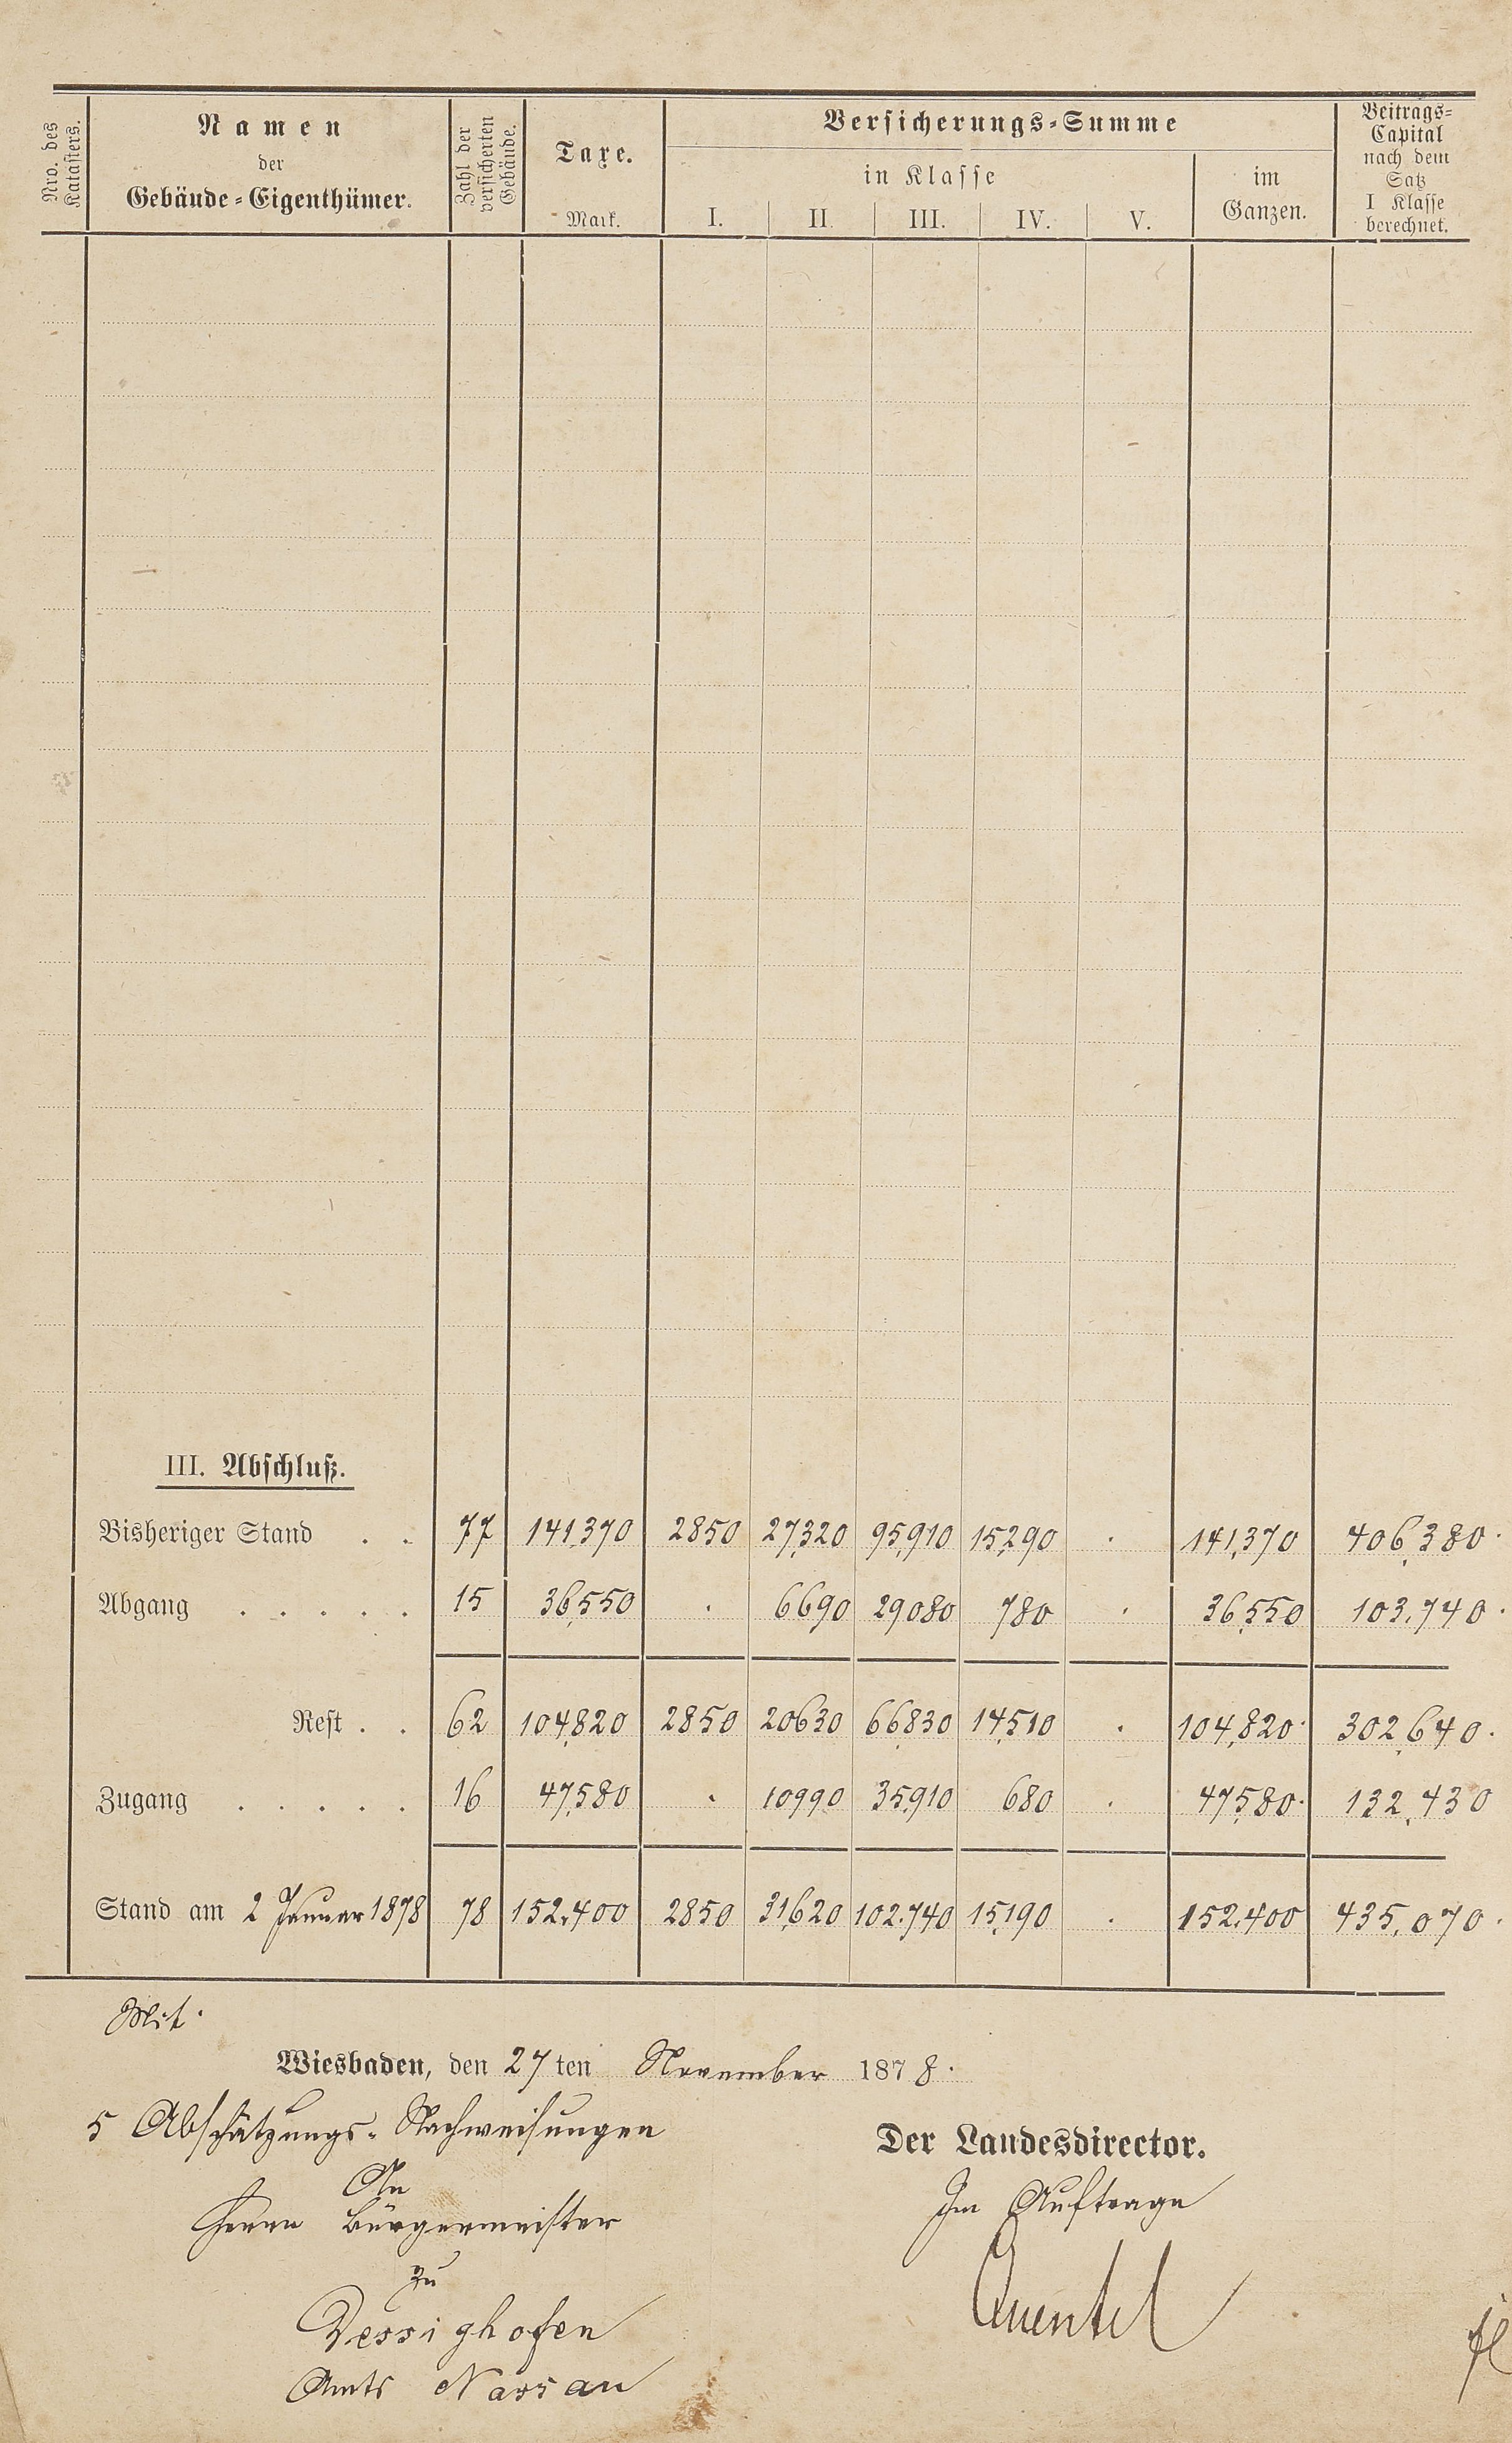 Nro. des Katasters.
Namen
der
Gebäude-Eigenthümer.
Zahl der versicherten Gebäude.
Taxe.
Mark.
Versicherungs-Summe
in Klasse
I. II. III. IV. V.
im
Ganzen.
Beitrags-
Capital
nach dem
Satz
I Klasse
berechnet.
III. Abschluß.
Bisheriger Stand . . 77 141,370 2850 27,320 95,910 15,290 . 141,370 406,380.
Abgang . . . . . 15 36,550 . 6690 29080 780 . 36,550 103.740.
Rest . . 62 104,820 2850 20630 66,830 14,510 . 104,820. 302,640.
Zugang . . . . . 16 47,580 . 10990 35,910 680 . 47,580. 132,430
Stand am 2 Januar 1878 78 152.400 2850 31,620 102.740 15,190 . 152.400 435.070.
Mit.
Wiesbaden, den 27 ten November 1878.
5 Abschätzungs-Nachweisungen
Der Landesdirector.
An
Im Auftrage
Herrn Bürgermeister
zu
Dessighofen
Amts Nassau